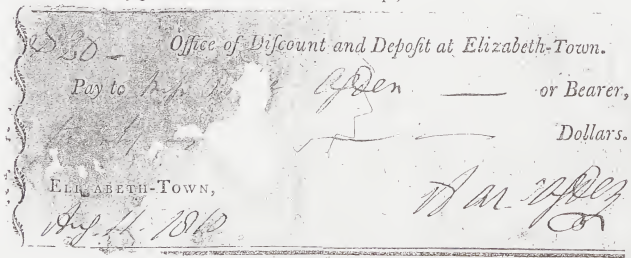 Office of Discount and Deposit at Elizabeth-Town.
Pay to Ogden or Bearer,
Dollars.
ELIZABETH-TOWN,
Aar. Ogden
Aug. 1810